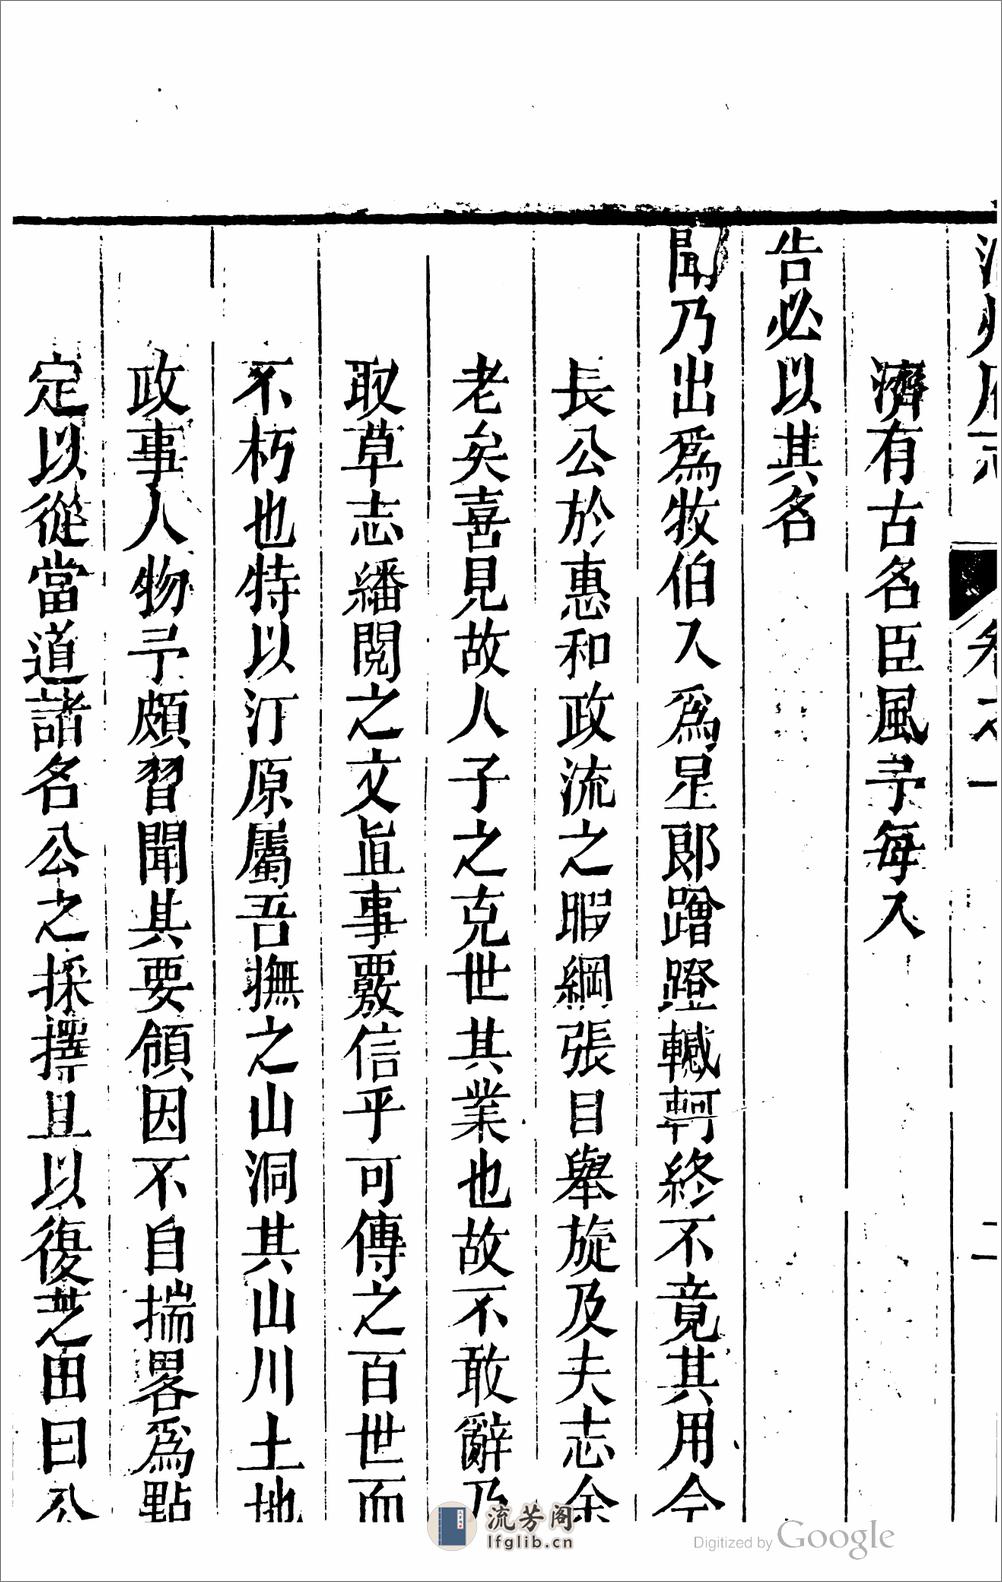 汀州府志 卷之一 二
濟有古名臣風予每入
告必以其名
聞乃出爲牧伯入爲星郎蹭蹬轗軻終不竟其用今
長公於惠和政流之暇綱張目舉旋及夫志余
老矣喜見故人子之克世其業也故不敢辭乃
取草志繙閱之文直事覈信乎可傳之百世而
不朽也特以汀原屬吾撫之山洞其山川土地
政事人物予頗習聞其要領因不自揣畧爲點
定以從當道諸名公之採擇且以復芝田曰公
流芳阁
lfglib.cn
Digitized by Google